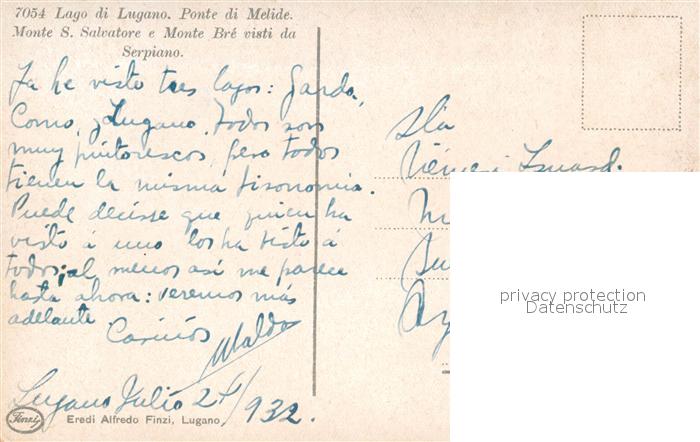 7054 Lago di Lugano. Ponte di Melide.
Monte S. Salvatore e Monte Bré visti da
Serpiano.
Ya he visto tres lagos: Garda,
Como, y Lugano. Todos son
muy pintorescos, pero todos
tienen la misma fisonomia.
Puede decirse que quien ha
visto á uno los ha visto á
todos; al menos así me parece
hasta ahora: veremos más
adelante
Cariños
Waldo
Lugano Julio 24/932.
Finzi
Eredi Alfredo Finzi, Lugano
privacy protection
Datenschutz